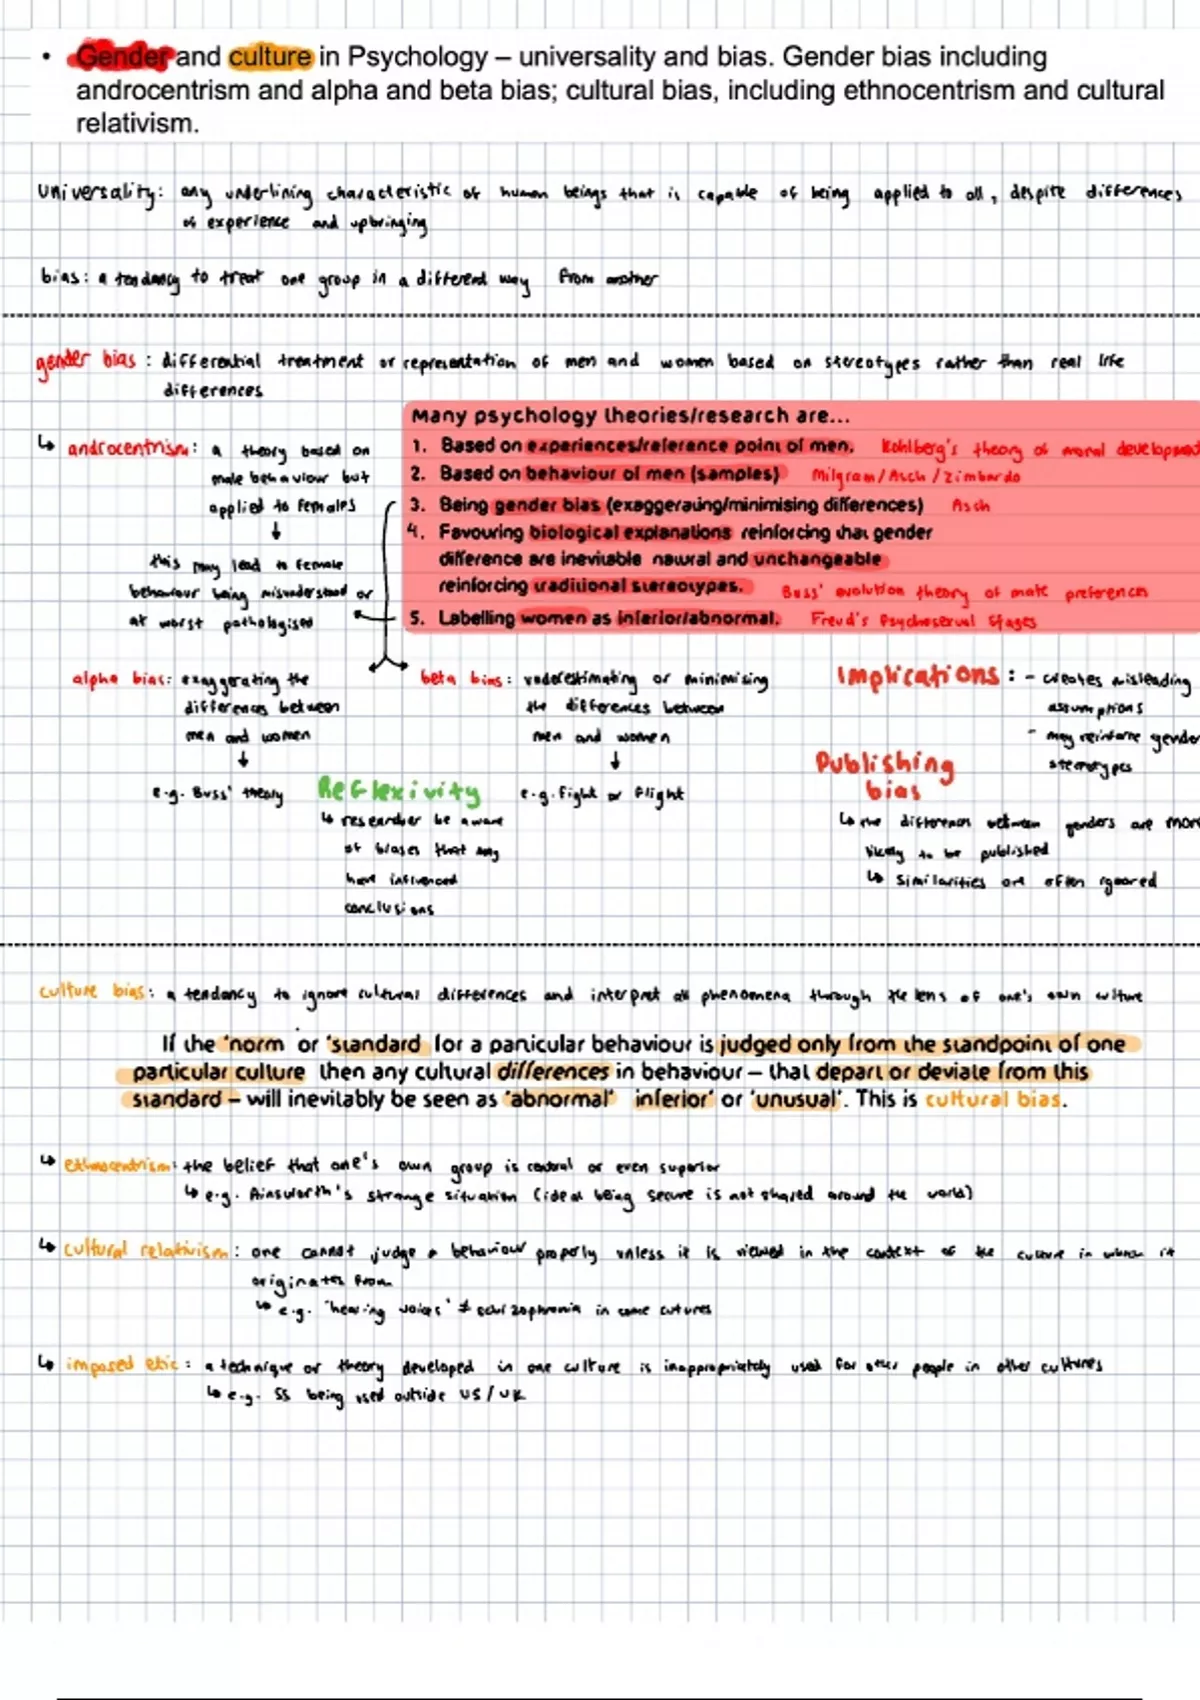 • Gender and culture in Psychology – universality and bias. Gender bias including
androcentrism and alpha and beta bias; cultural bias, including ethnocentrism and cultural
relativism.
universality: any underlining characteristic of human beings that is capable of being applied to all, despite differences
of experience and upbringing
bias: a tendancy to treat one group in a different way from another
gender bias: differential treatment or representation of men and women based on stereotypes rather than real life
differences
↳ androcentrism: a theory based on
male behaviour but
applied to females
↓
this may lead to female
behaviour being misunderstood or
at worst pathologised
Many psychology theories/research are...
1. Based on experiences/reference point of men. Kohlberg's theory of moral development
2. Based on behaviour of men (samples) Milgram/Asch/Zimbardo
3. Being gender bias (exaggerating/minimising differences) Asch
4. Favouring biological explanations reinforcing that gender
difference are inevitable natural and unchangeable
reinforcing traditional stereotypes. Buss' evolution theory of mate preferences
5. Labelling women as inferior/abnormal. Freud's Psychosexual Stages
alpha bias: exaggerating the
differences between
men and women
↓
e.g. Buss' theory
Reflexivity
↳ researcher be aware
of biases that may
have influenced
conclusions
beta bias: underestimating or minimising
the differences between
men and women
↓
e.g. fight or flight
Implications: - creates misleading
assumptions
- may reinforce gender
stereotypes
Publishing
bias
↳ the differences between genders are more
likely to be published
↳ similarities are often ignored
culture bias: a tendancy to ignore cultural differences and interpret all phenomena through the lens of one's own culture
If the 'norm or 'standard for a particular behaviour is judged only from the standpoint of one
particular culture then any cultural differences in behaviour – that depart or deviate from this
standard – will inevitably be seen as 'abnormal' inferior' or 'unusual'. This is cultural bias.
↳ ethnocentrism: the belief that one's own group is central or even superior
↳ e.g. Ainsworth's strange situation (ideal being secure is not shared around the world)
↳ cultural relativism: one cannot judge a behaviour properly unless it is viewed in the context of the culture in which it
originates from
↳ e.g. 'hearing voices' ≠ schizophrenia in some cutures
↳ imposed etic: a technique or theory developed in one culture is inappropriately used for other people in other cultures
↳ e.g. SS being used outside US/UK